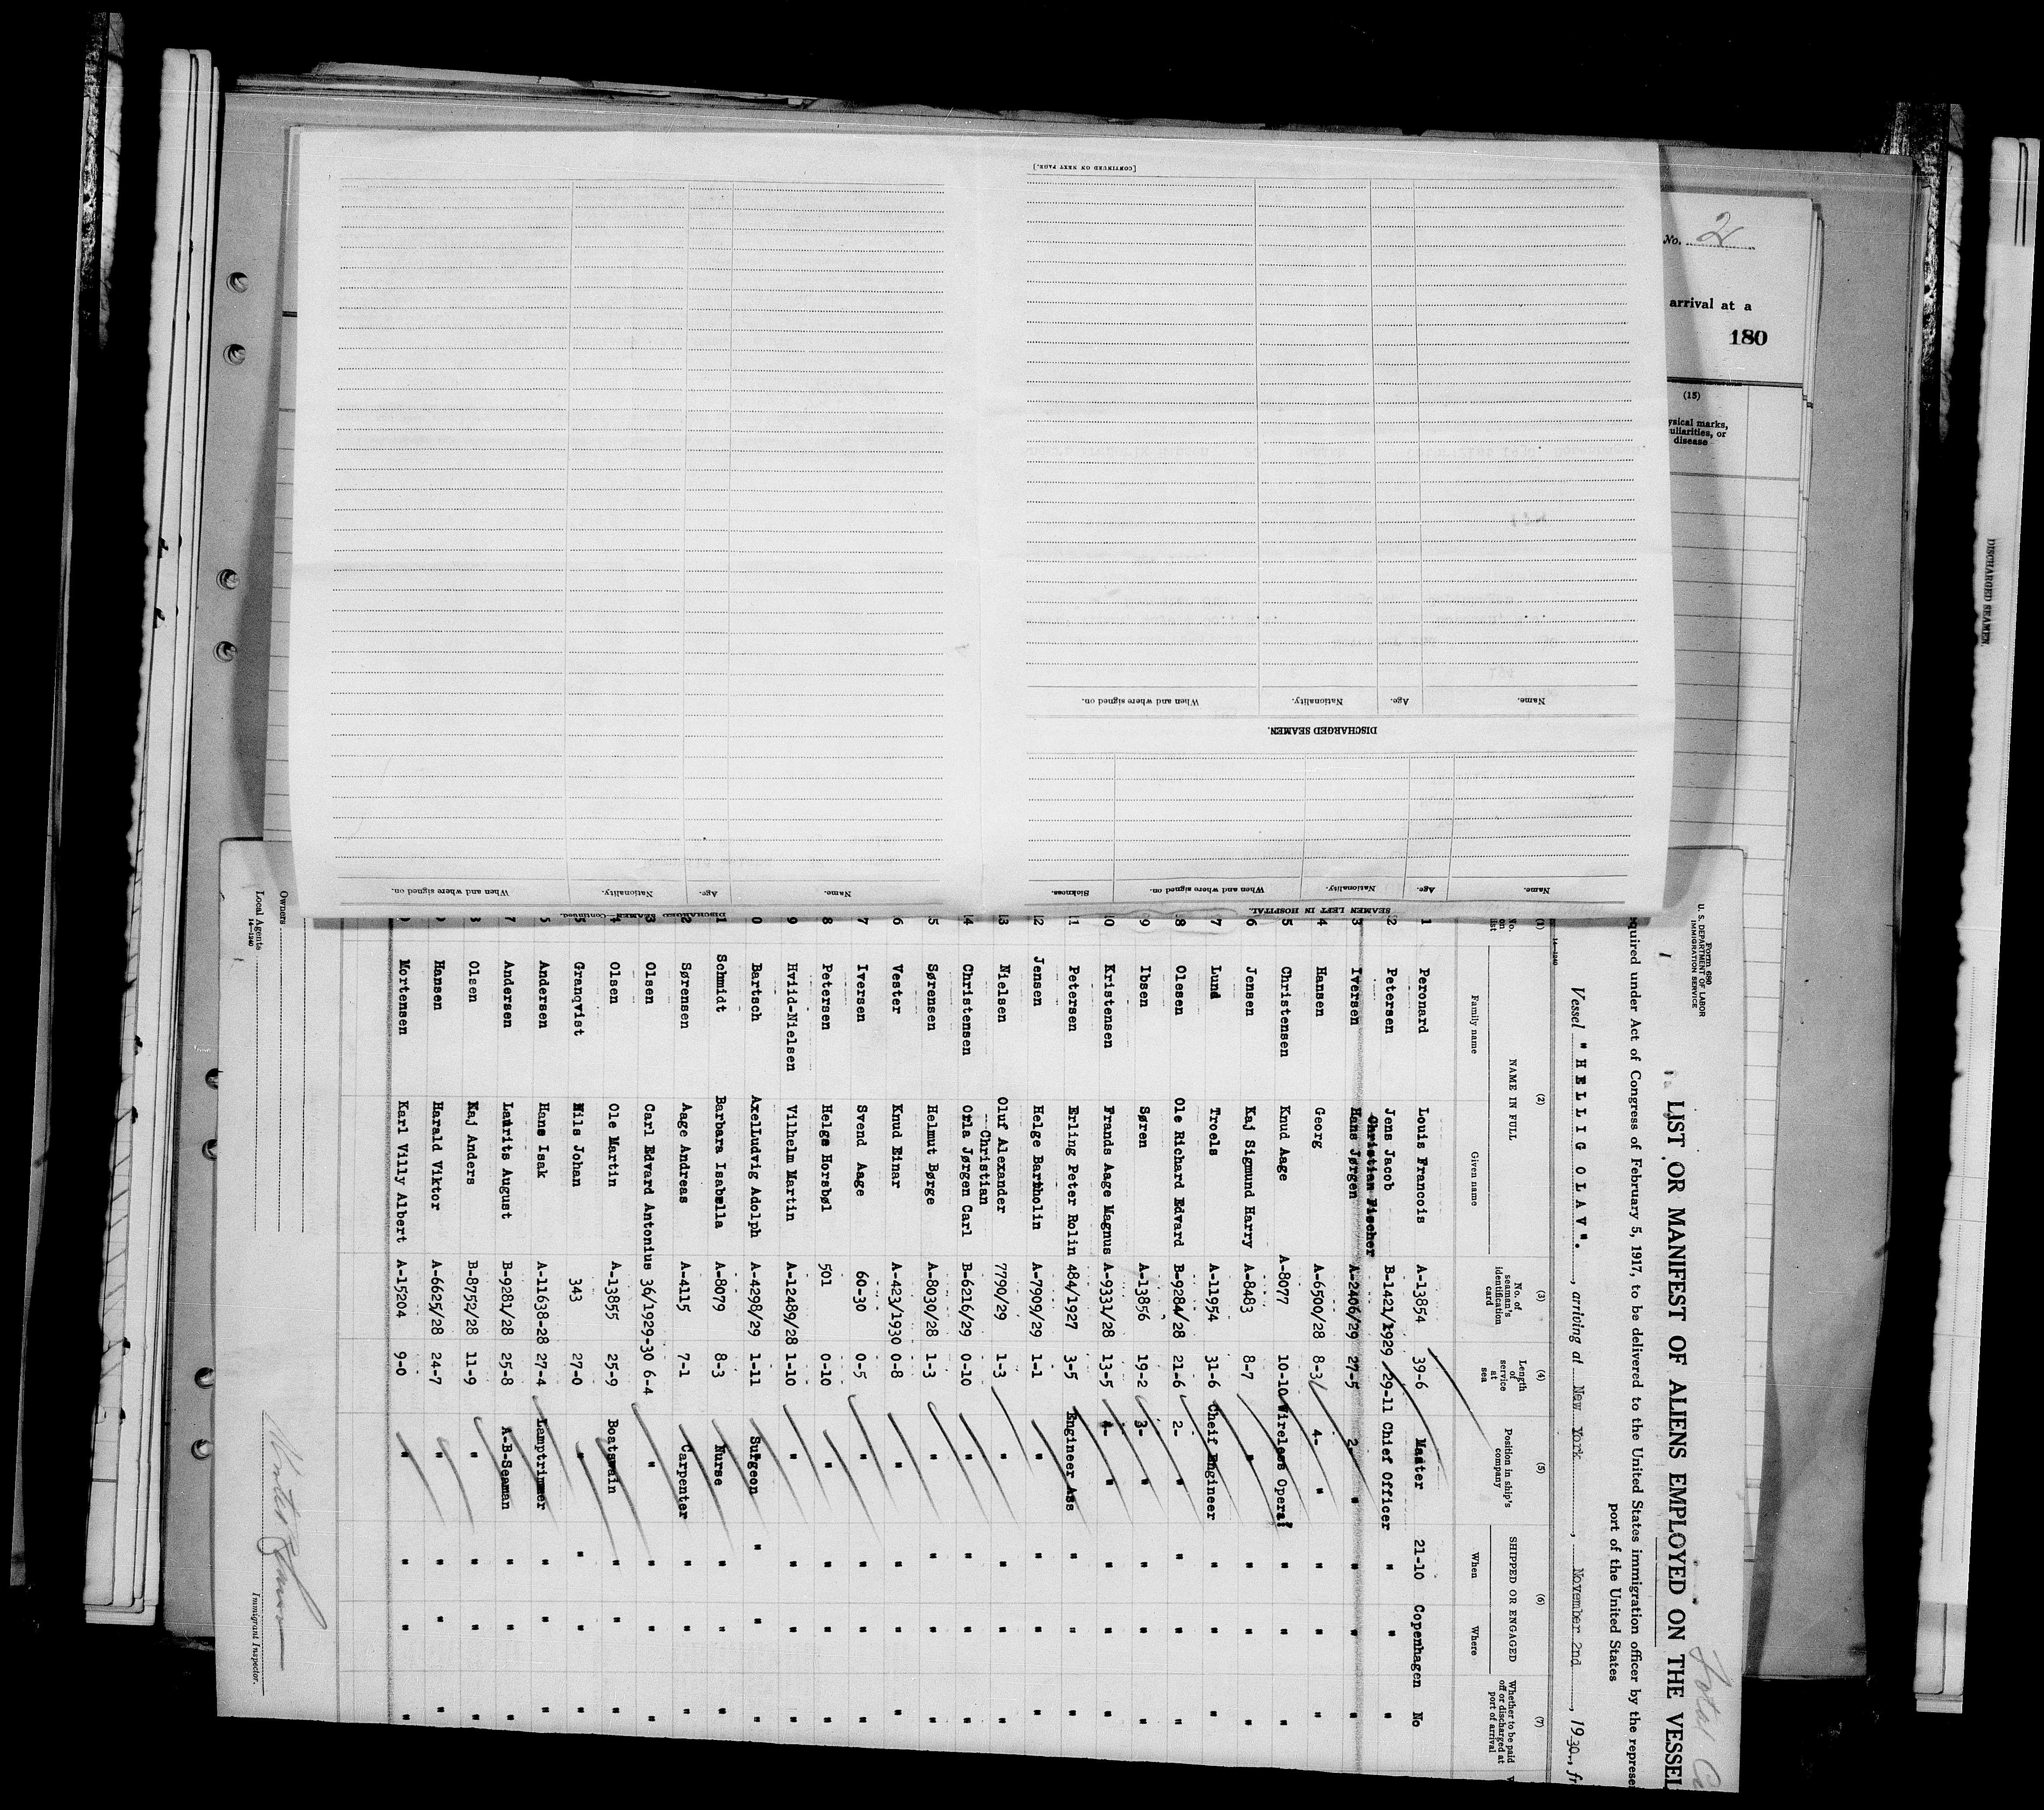 No. 2
arrival at a
180
(15)
ysical marks,
uliarities, or
disease
DISCHARGED SEAMEN.
[CONTINUED ON NEXT PAGE.]
Name. Age. Nationality. When and where signed on.
DISCHARGED SEAMEN.
Name. Age. Nationality. When and where signed on. Sickness.
SEAMEN LEFT IN HOSPITAL.
Name. Age. Nationality. When and where signed on.
DISCHARGED SEAMEN—Continued.
Form 680
U. S. DEPARTMENT OF LABOR
IMMIGRATION SERVICE
Total
LIST OR MANIFEST OF ALIENS EMPLOYED ON THE VESSEL
quired under Act of Congress of February 5, 1917, to be delivered to the United States immigration officer by the represe
port of the United States
Vessel "HELLIG OLAV"., arriving at New York, November 2nd, 1930, fr
14—1240
(1) (2) (3) (4) (5) (6) (7)
No. on list NAME IN FULL No. of seaman's identification card Length of service at sea Position in ship's company SHIPPED OR ENGAGED Whether to be paid off or discharged at port of arrival
Family name Given name When Where
1 Peronard Louis Francois A-13854 39-6 Master 21-10 Copenhagen No
2 Petersen Jens Jacob B-1421/1929 29-11 Chief Officer " " "
Christian Fischer
3 Iversen Hans Jørgen A-2406/29 27-5 2- " " " "
4 Hansen Georg A-6500/28 8-3 4- " " " "
5 Christensen Knud Aage A-8077 10-10 Wireless Operat " " "
6 Jensen Kaj Sigmund Harry A-8483 8-7 " " " "
7 Lund Troels A-11954 31-6 Cheif Engineer " " "
8 Olesen Ole Richard Edvard B-9284/28 21-6 2- " " " "
9 Ibsen Søren A-13856 19-2 3- " " " "
10 Kristensen Frands Aage Magnus A-9331/28 13-5 4- " " " "
11 Petersen Erling Peter Rolin 484/1927 3-5 Engineer Ass " " "
12 Jensen Helge Bartholin A-7909/29 1-1 " " " "
13 Nielsen Oluf Alexander 7790/29 1-3 " " " "
Christian
14 Christensen Orla Jørgen Carl B-6216/29 0-10 " " " "
5 Sørensen Helmut Børge A-8030/28 1-3 " " " "
6 Vester Knud Einar A-423/1930 0-8 " " " "
7 Iversen Svend Aage 60-30 0-5 " " " "
8 Petersen Helge Horsbøl 501 0-10 " " " "
9 Hviid-Nielsen Vilhelm Martin A-12489/28 1-10 " " " "
0 Bartsch AxelLudvig Adolph A-4298/29 1-11 Surgeon " " "
1 Schmidt Barbara Isabella A-8079 8-3 Nurse " " "
2 Sørensen Aage Andreas A-4115 7-1 Carpenter " " "
3 Olsen Carl Edvard Antonius 36/1929-30 6-4 " " " "
4 Olsen Ole Martin A-13855 25-9 Boatswain " " "
5 Granqvist Nils Johan 343 27-0 " " " "
Andersen Hans Isak A-11638-28 27-4 Lamptrimmer " " "
7 Andersen Laurits August B-9281/28 25-8 A-B-Seaman " " "
Olsen Kaj Anders B-8752/28 11-9 " " " "
Hansen Harald Viktor A-6625/28 24-7 " " " "
Mortensen Karl Villy Albert A-15204 9-0 " " " "
Owners
Local Agents
14—1240
Immigrant Inspector.